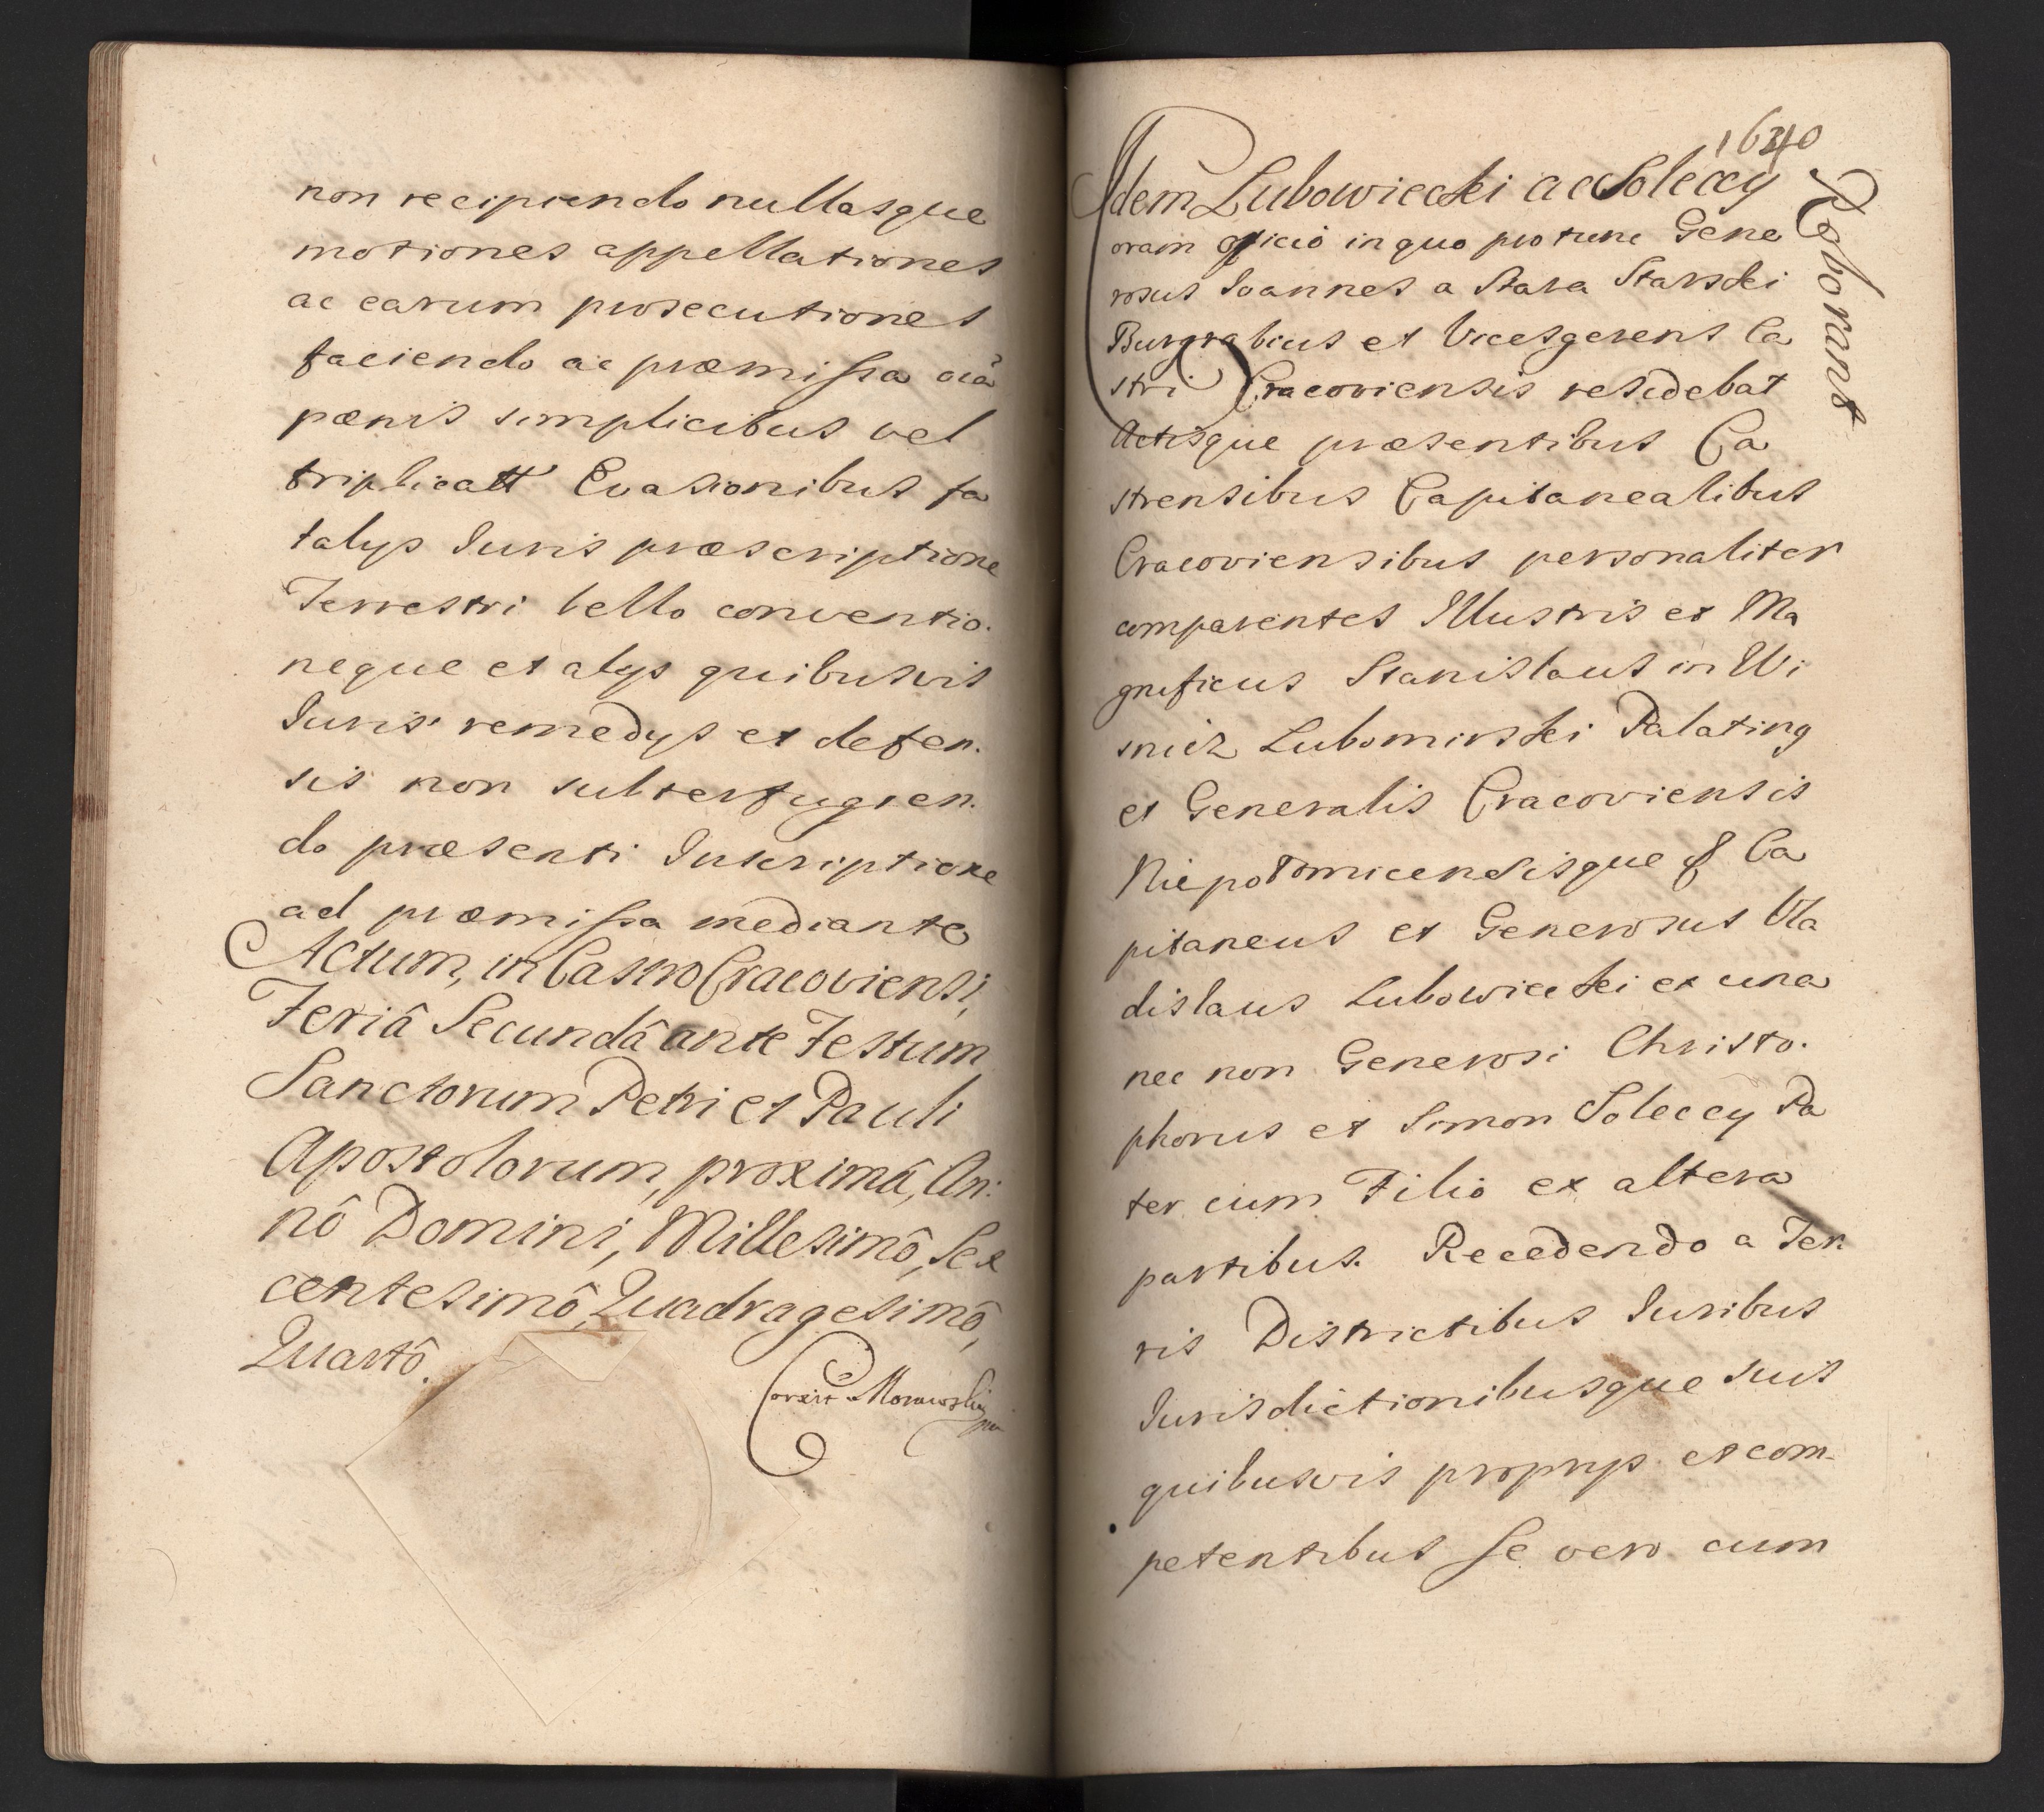 non recipiendo nullasque
motiones appellationes
ac earum prosecutiones
faciendo ac præmissa oiâ
pœnis simplicibus vel
triplicatt Evasionibus fa
talys Iuris præscriptione
Terrestri bello conventio.
neque et alys quibusvis
Iuris remedys et defen.
sis non subterfugien.
do præsenti Inscriptione
ad præmissa mediante
Actum, in Castro Cracoviensi,
Feriâ Secundâ ante Festum
Sanctorum Petri et Pauli
Apostolorum, proximâ, An:
nô Domini, Millesimô, Sex
centesimô, Quadragesimô,
Quartô.
Correxit
1640
Roborant
Idem Lubowiecki ac Soleccy
oram officio in quo pro tunc Gene
rosus Ioannes a Stara Starski
Burgrabius et Vicesgerens Ca
stri Cracoviensis residebat
Actisque præsentibus Ca
strensibus Capitanealibus
Cracoviensibus personaliter
comparentes Illustris et Ma
gnificus Stanislaus in Wi
snicz Lubomirski Palating
et Generalis Cracoviensis
Niepotomicensisque & Ca
pitaneus et Generosus Vla
dislaus Lubowiecki ex una
nec non Generosi Christo.
phorus et Simon Soleccy Pa
ter cum Filio ex altera
partibus. Recedendo a Ter
ris Districtibus Iuribus
Iurisdictionibusque suis
quibusvis proprys et com-
petentibus se vero cum